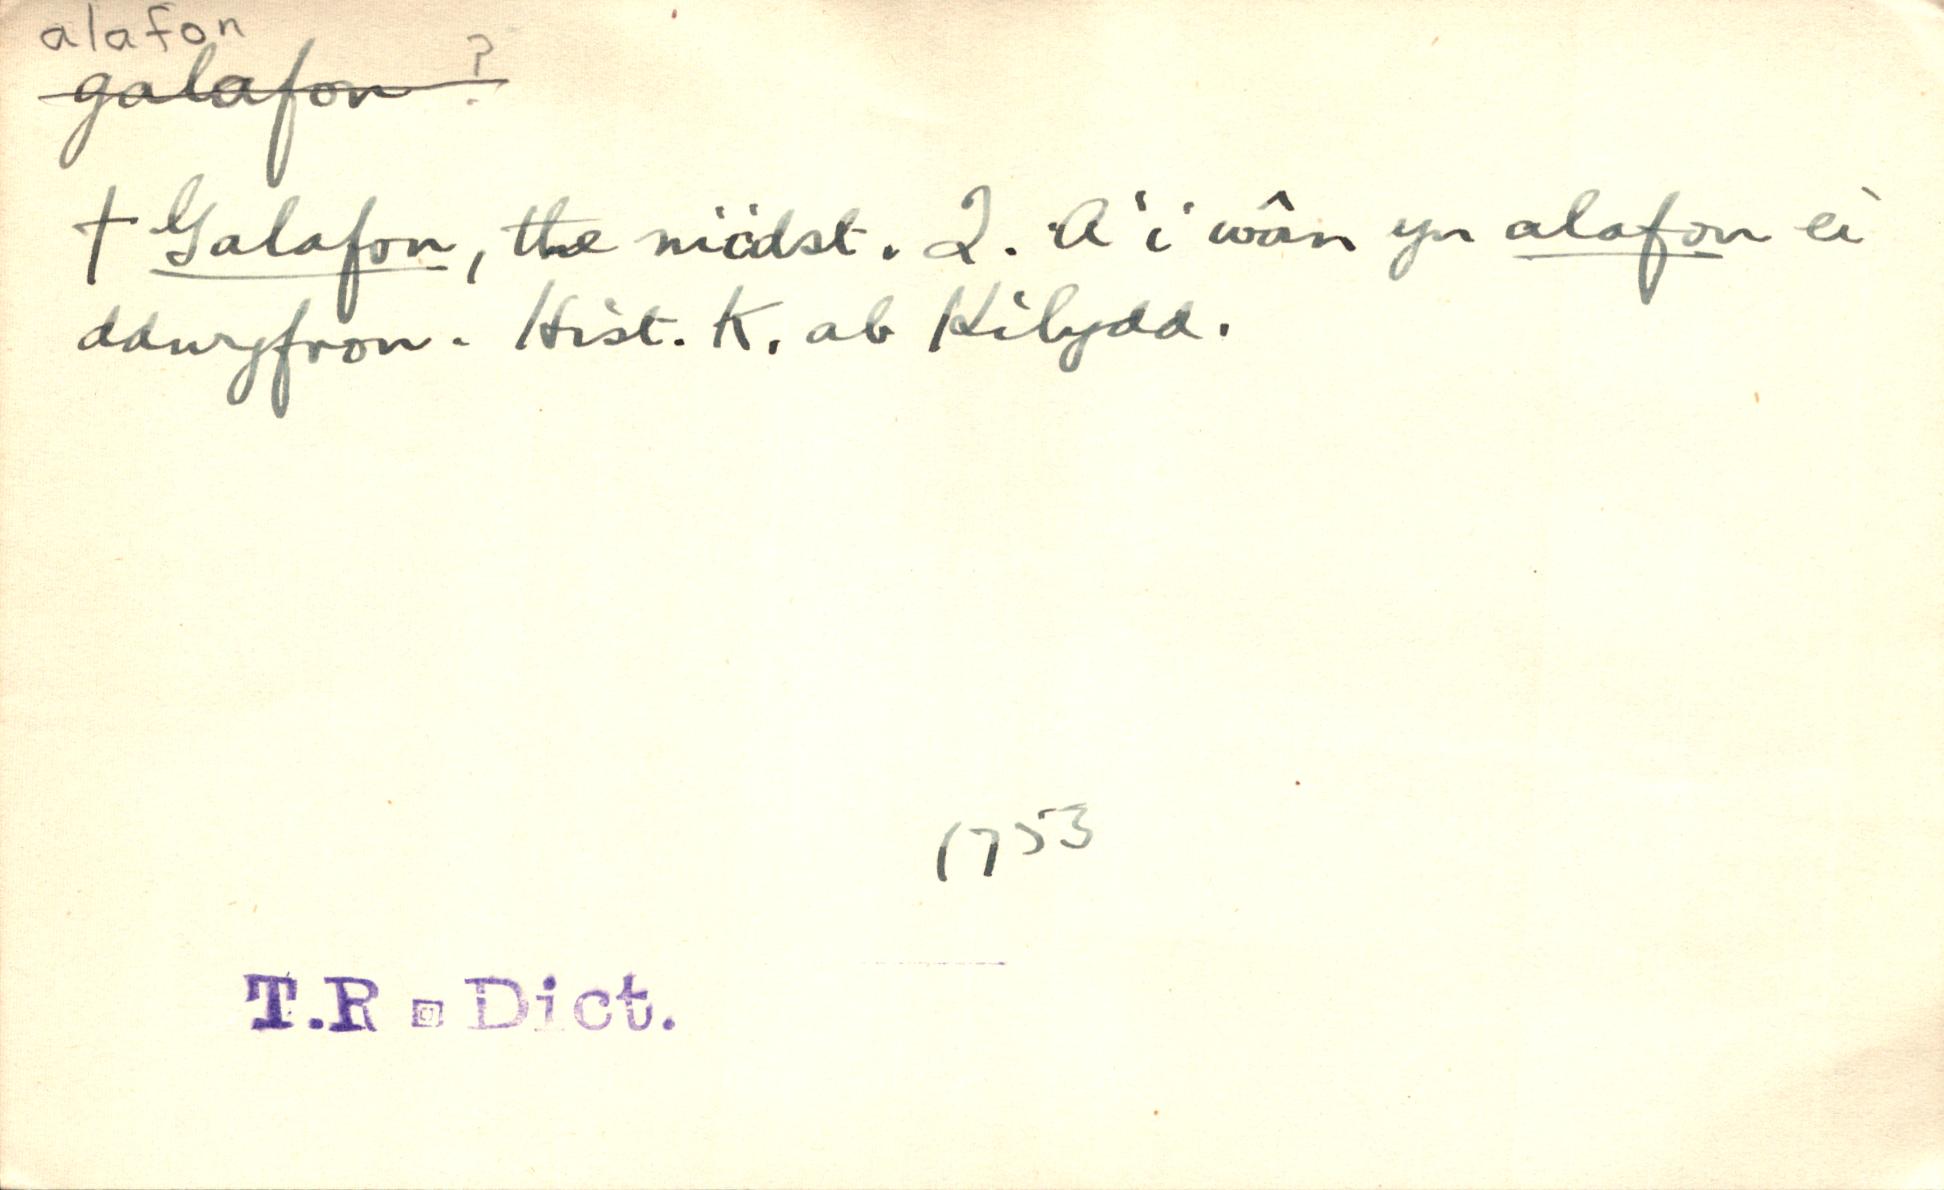 alafon
galafon ?
† Galafon, the midst. Q. A'i wân yn alafon ei
ddwyfron. Hist. K. ab Kilydd.
1753
T.R. Dict.